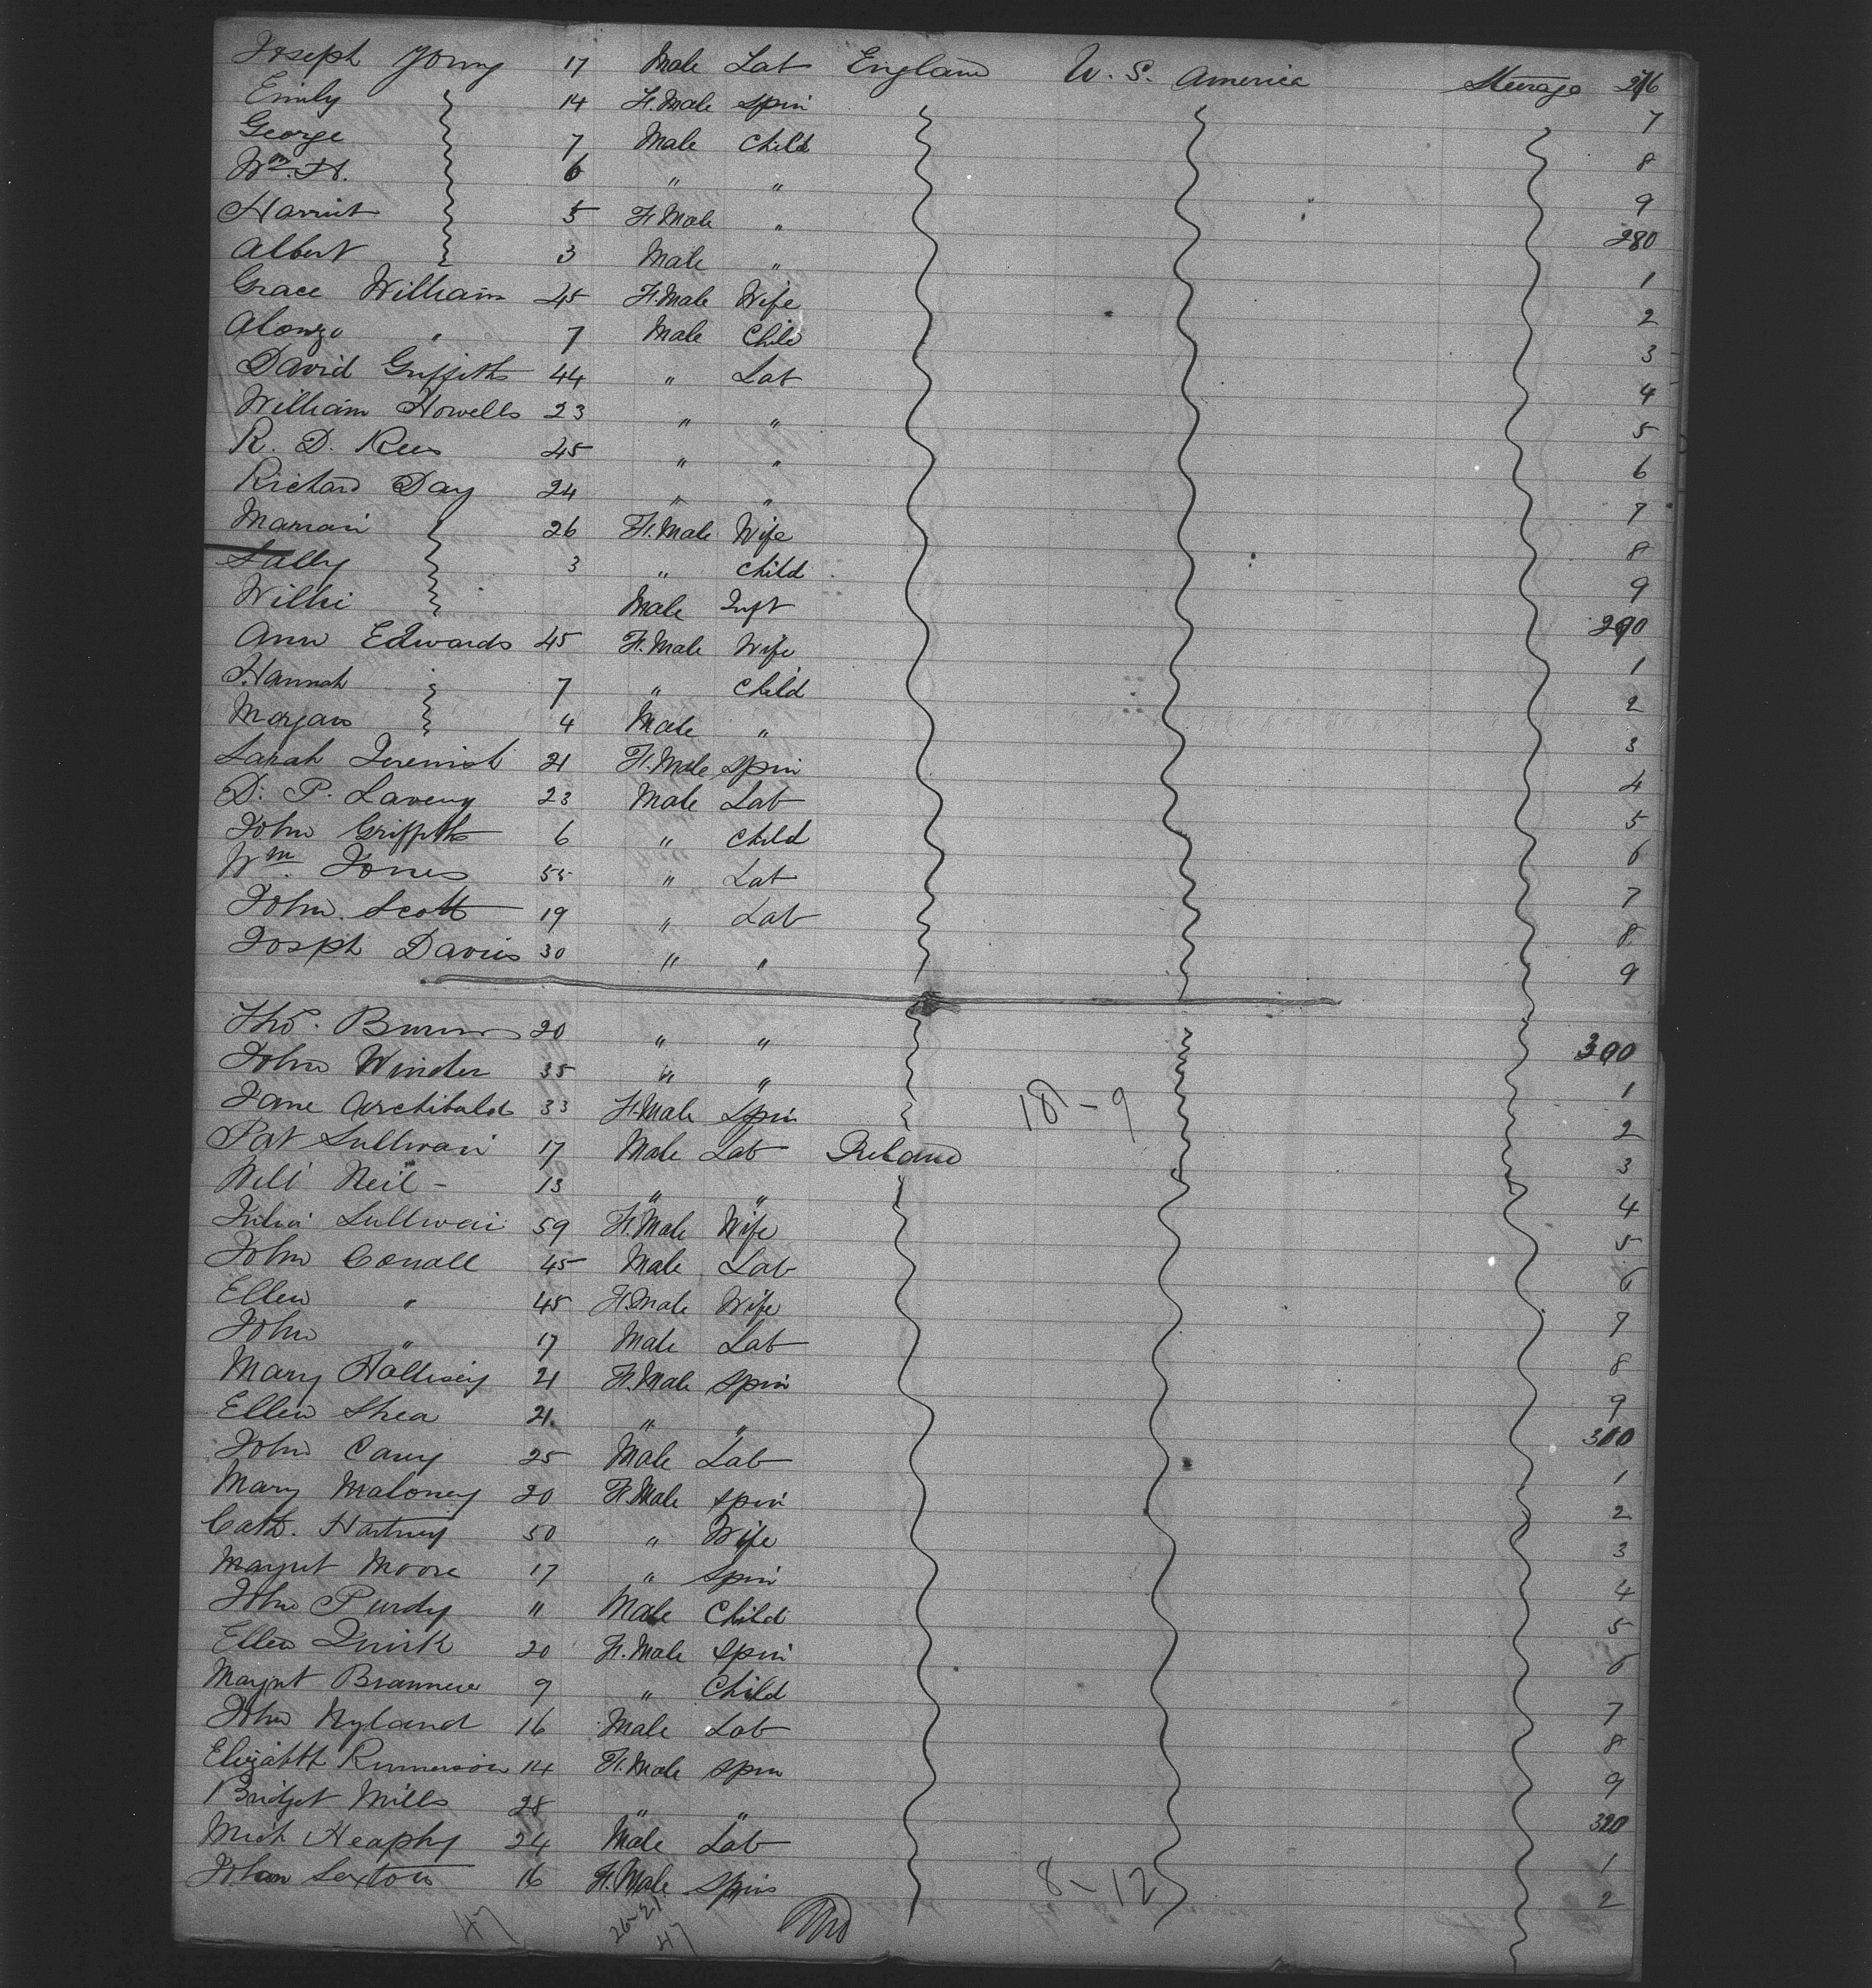 Joseph Young 17 Male Lab England U. S. America Steerage 276
Emily 14 F.Male Spin 7
George 7 Male Child 8
Wm. H. 6 " " 9
Harriet 5 F.Male " 280
Albert 3 Male " 1
Grace William 45 F.Male Wife 2
Alonzo " 7 Male Child 3
David Griffiths 44 " Lab 4
William Howells 23 " " 5
R. D. Rees 45 " " 6
Richard Day 24 " " 7
26 F.Male Wife 8
Sally 3 " Child 9
Willie Male Inft 290
Ann Edwards 45 F.Male Wife 1
Hannah 7 " Child 2
Morgan 4 Male " 3
Sarah Jeremiah 21 F.Male Spin 4
D. P. 23 Male Lab 5
John Griffiths 6 " Child 6
Wm. Jones 55 " Lab 7
John Scott 19 " Lab 8
Joseph Davies 30 " " 9
Tho. Burns 20 " " 300
John Winder 35 " " 1
Jane Archibald 33 F.Male Spin 18-9 2
Pat Sullivan 17 Male Lab Ireland 3
Neil 13 " " 4
Julia Sullivan 59 F.Male Wife 5
John Conall 45 Male Lab 6
Ellen " 45 F.Male Wife 7
John " 17 Male Lab 8
Mary 21 F.Male Spin 9
Ellen Shea 21 " " 310
John Carey 25 Male Lab 1
Mary Maloney 20 F.Male Spin 2
Cath. Hartney 50 " Wife 3
Margret Moore 17 " Spin 4
John Purdy " Male Child 5
Ellen Quirk 20 F.Male Spin 6
Margret 9 " Child 7
John Hyland 16 Male Lab 8
Elizabth 14 F.Male Spin 9
Bridget Mills 28 " " 320
Mich Heaphy 24 Male Lab 1
Sexton 16 F.Male Spin 8-12 2
47 26-21 47